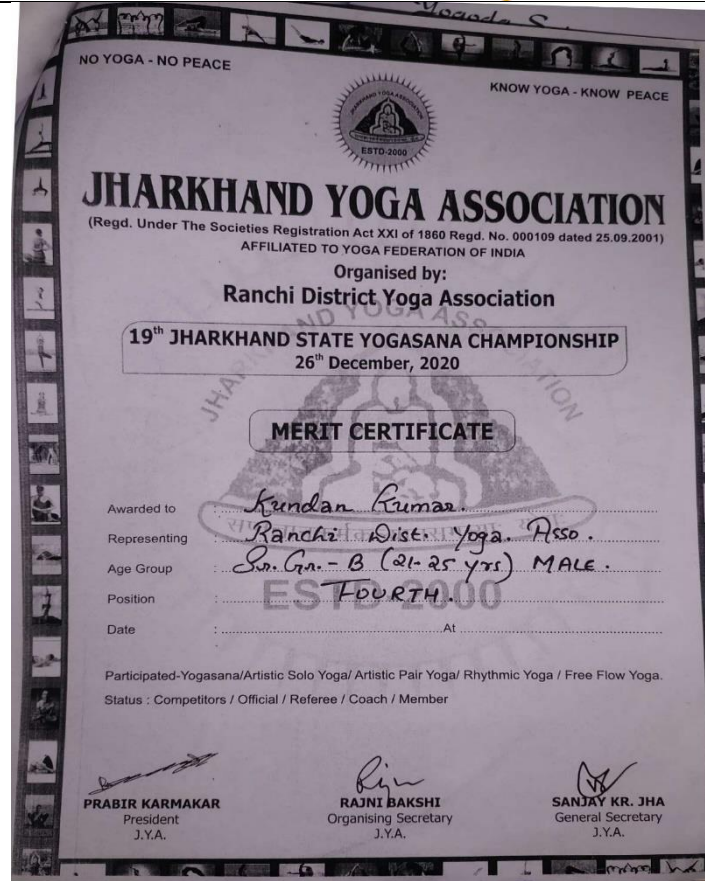 Yogoda S
NO YOGA - NO PEACE
KNOW YOGA - KNOW PEACE
JHARKHAND YOGA ASSOCIATION
ESTD-2000
JHARKHAND YOGA ASSOCIATION
(Regd. Under The Societies Registration Act XXI of 1860 Regd. No. 000109 dated 25.09.2001)
AFFILIATED TO YOGA FEDERATION OF INDIA
Organised by:
Ranchi District Yoga Association
19th JHARKHAND STATE YOGASANA CHAMPIONSHIP
26th December, 2020
JHARKHAND YOGA ASSOCIATION
MERIT CERTIFICATE
Awarded to : Kundan Kumar.
Representing : Ranchi Dist. Yoga. Asso.
Age Group : Sr. Gr. - B (21-25 yrs) MALE.
Position : FOURTH.
ESTD-2000
Date : At
Participated-Yogasana/Artistic Solo Yoga/ Artistic Pair Yoga/ Rhythmic Yoga / Free Flow Yoga.
Status : Competitors / Official / Referee / Coach / Member
PRABIR KARMAKAR
President
J.Y.A.
RAJNI BAKSHI
Organising Secretary
J.Y.A.
SANJAY KR. JHA
General Secretary
J.Y.A.